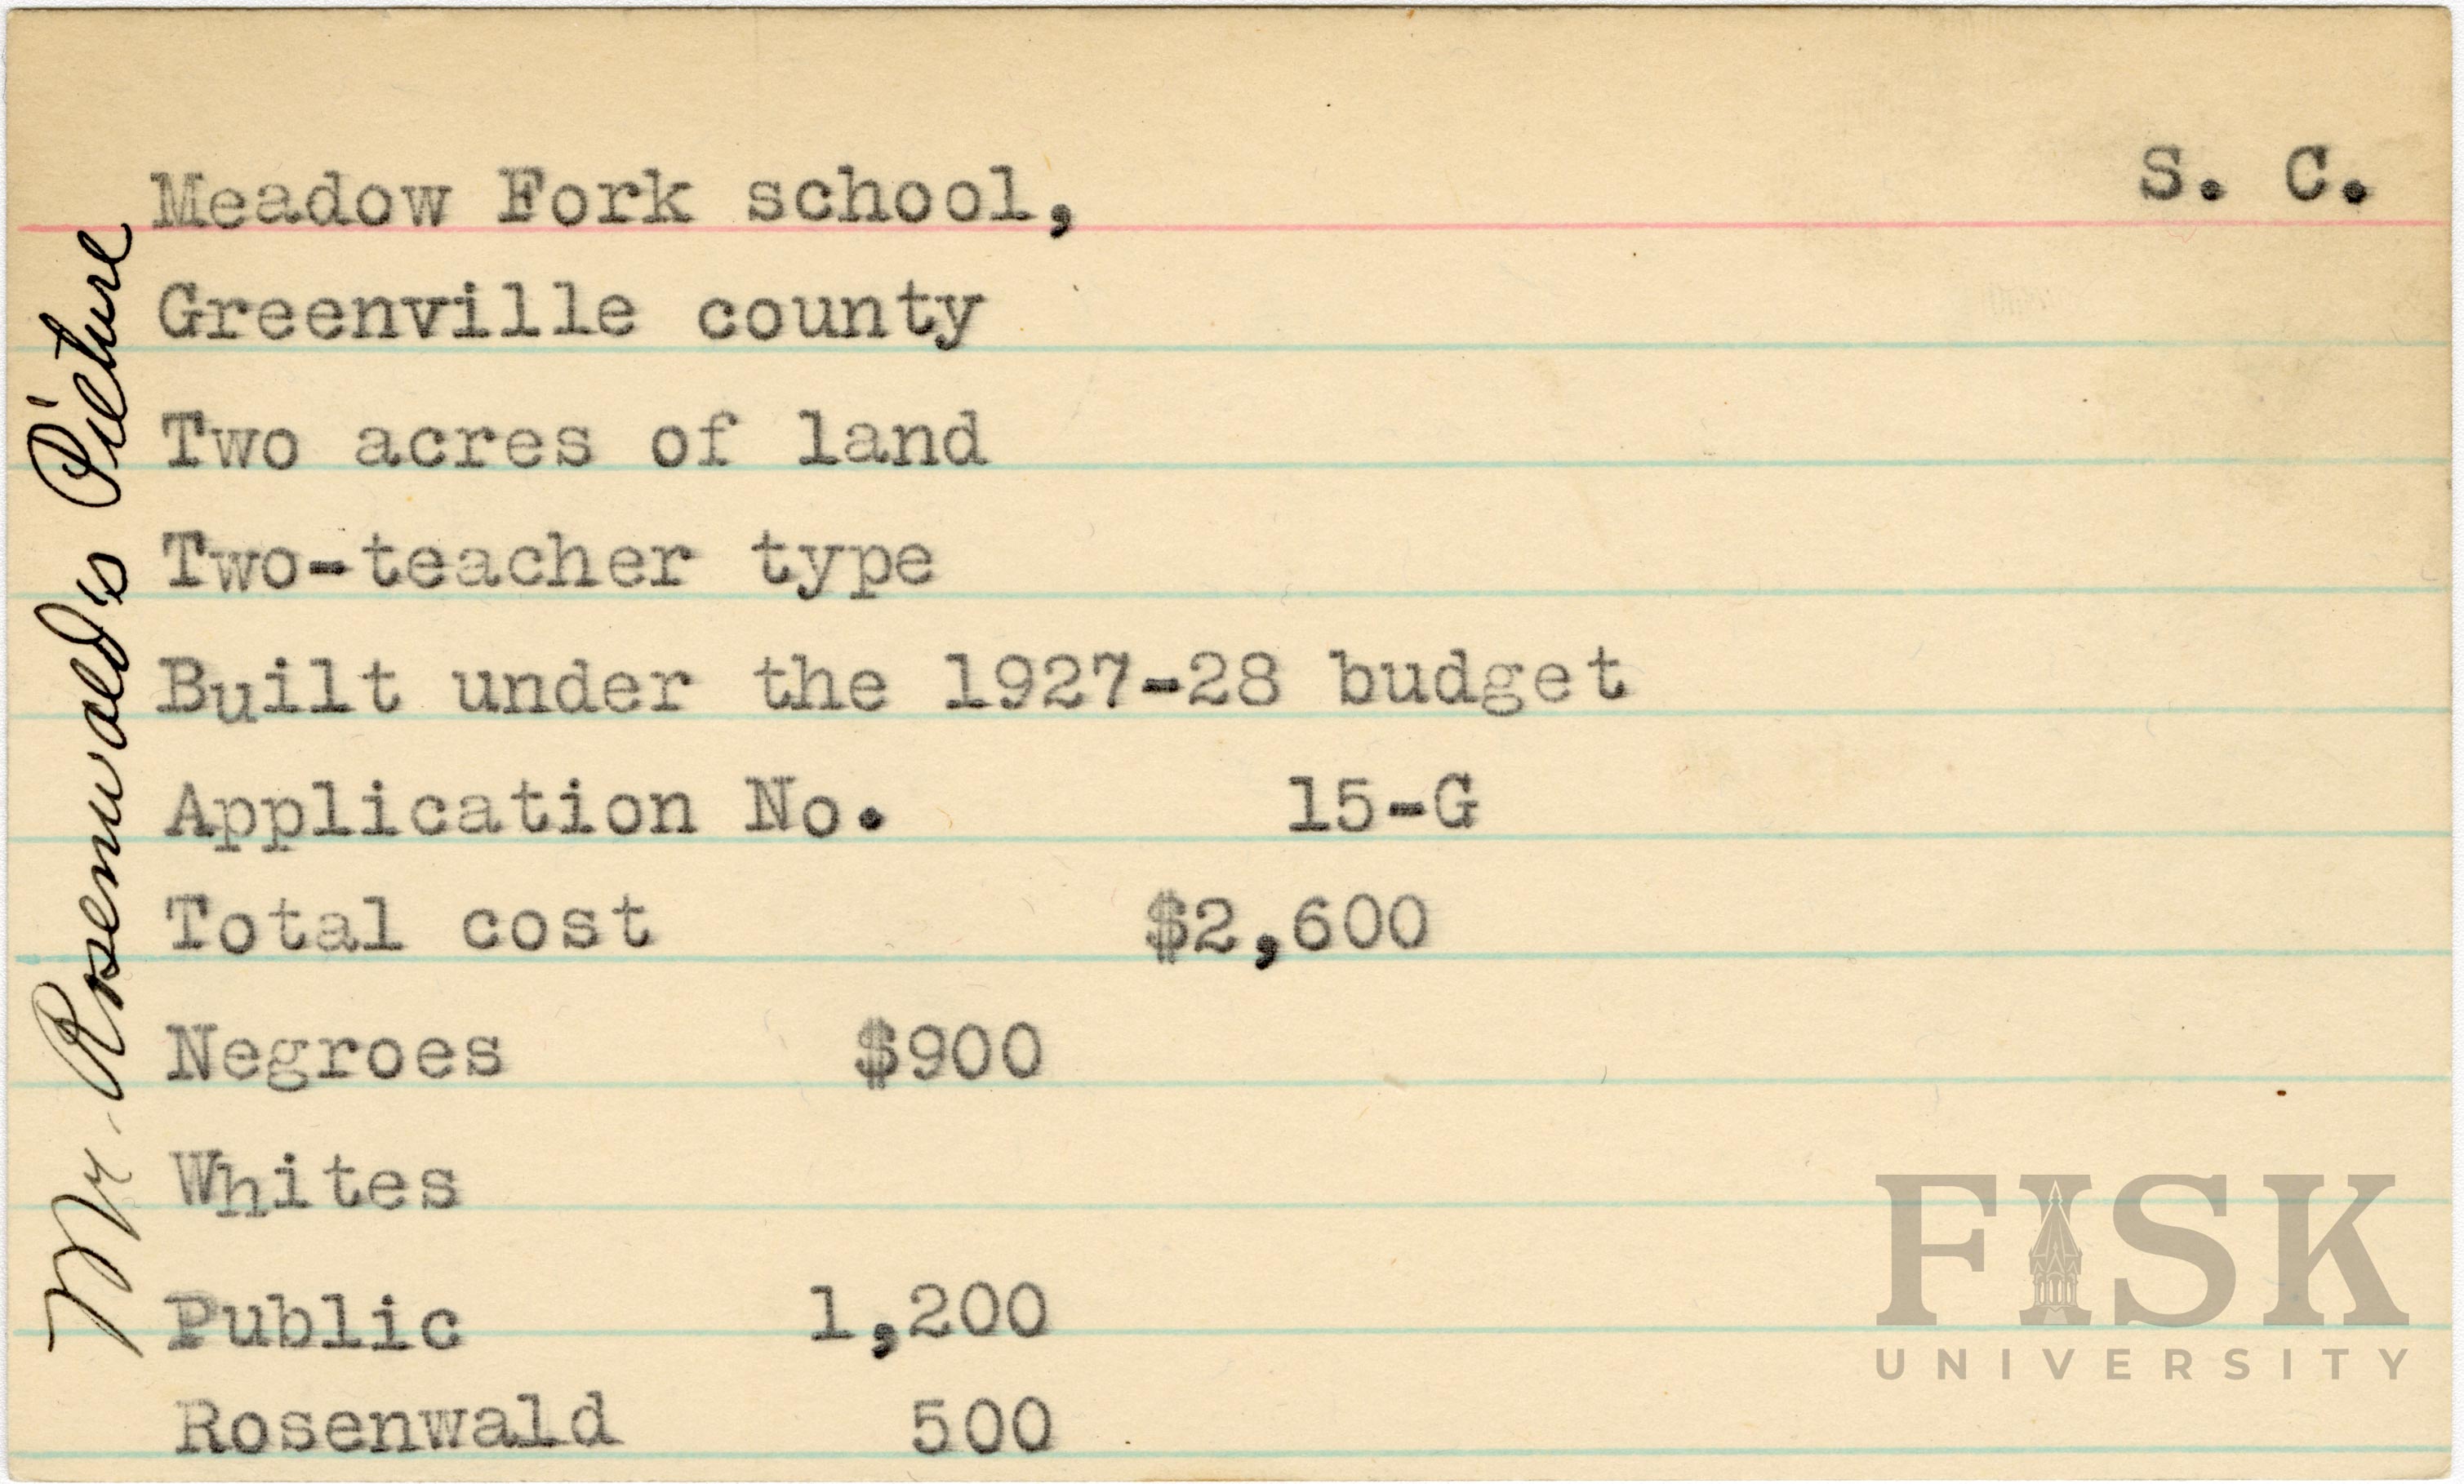 Meadow Fork school, S. C.
Greenville county
Two acres of land
Two-teacher type
Built under the 1927-28 budget
Application No. 15-G
Total cost $2,600
Negroes $900
Whites
Public 1,200
Rosenwald 500
Mr. Rosenwald's Picture
FISK
UNIVERSITY